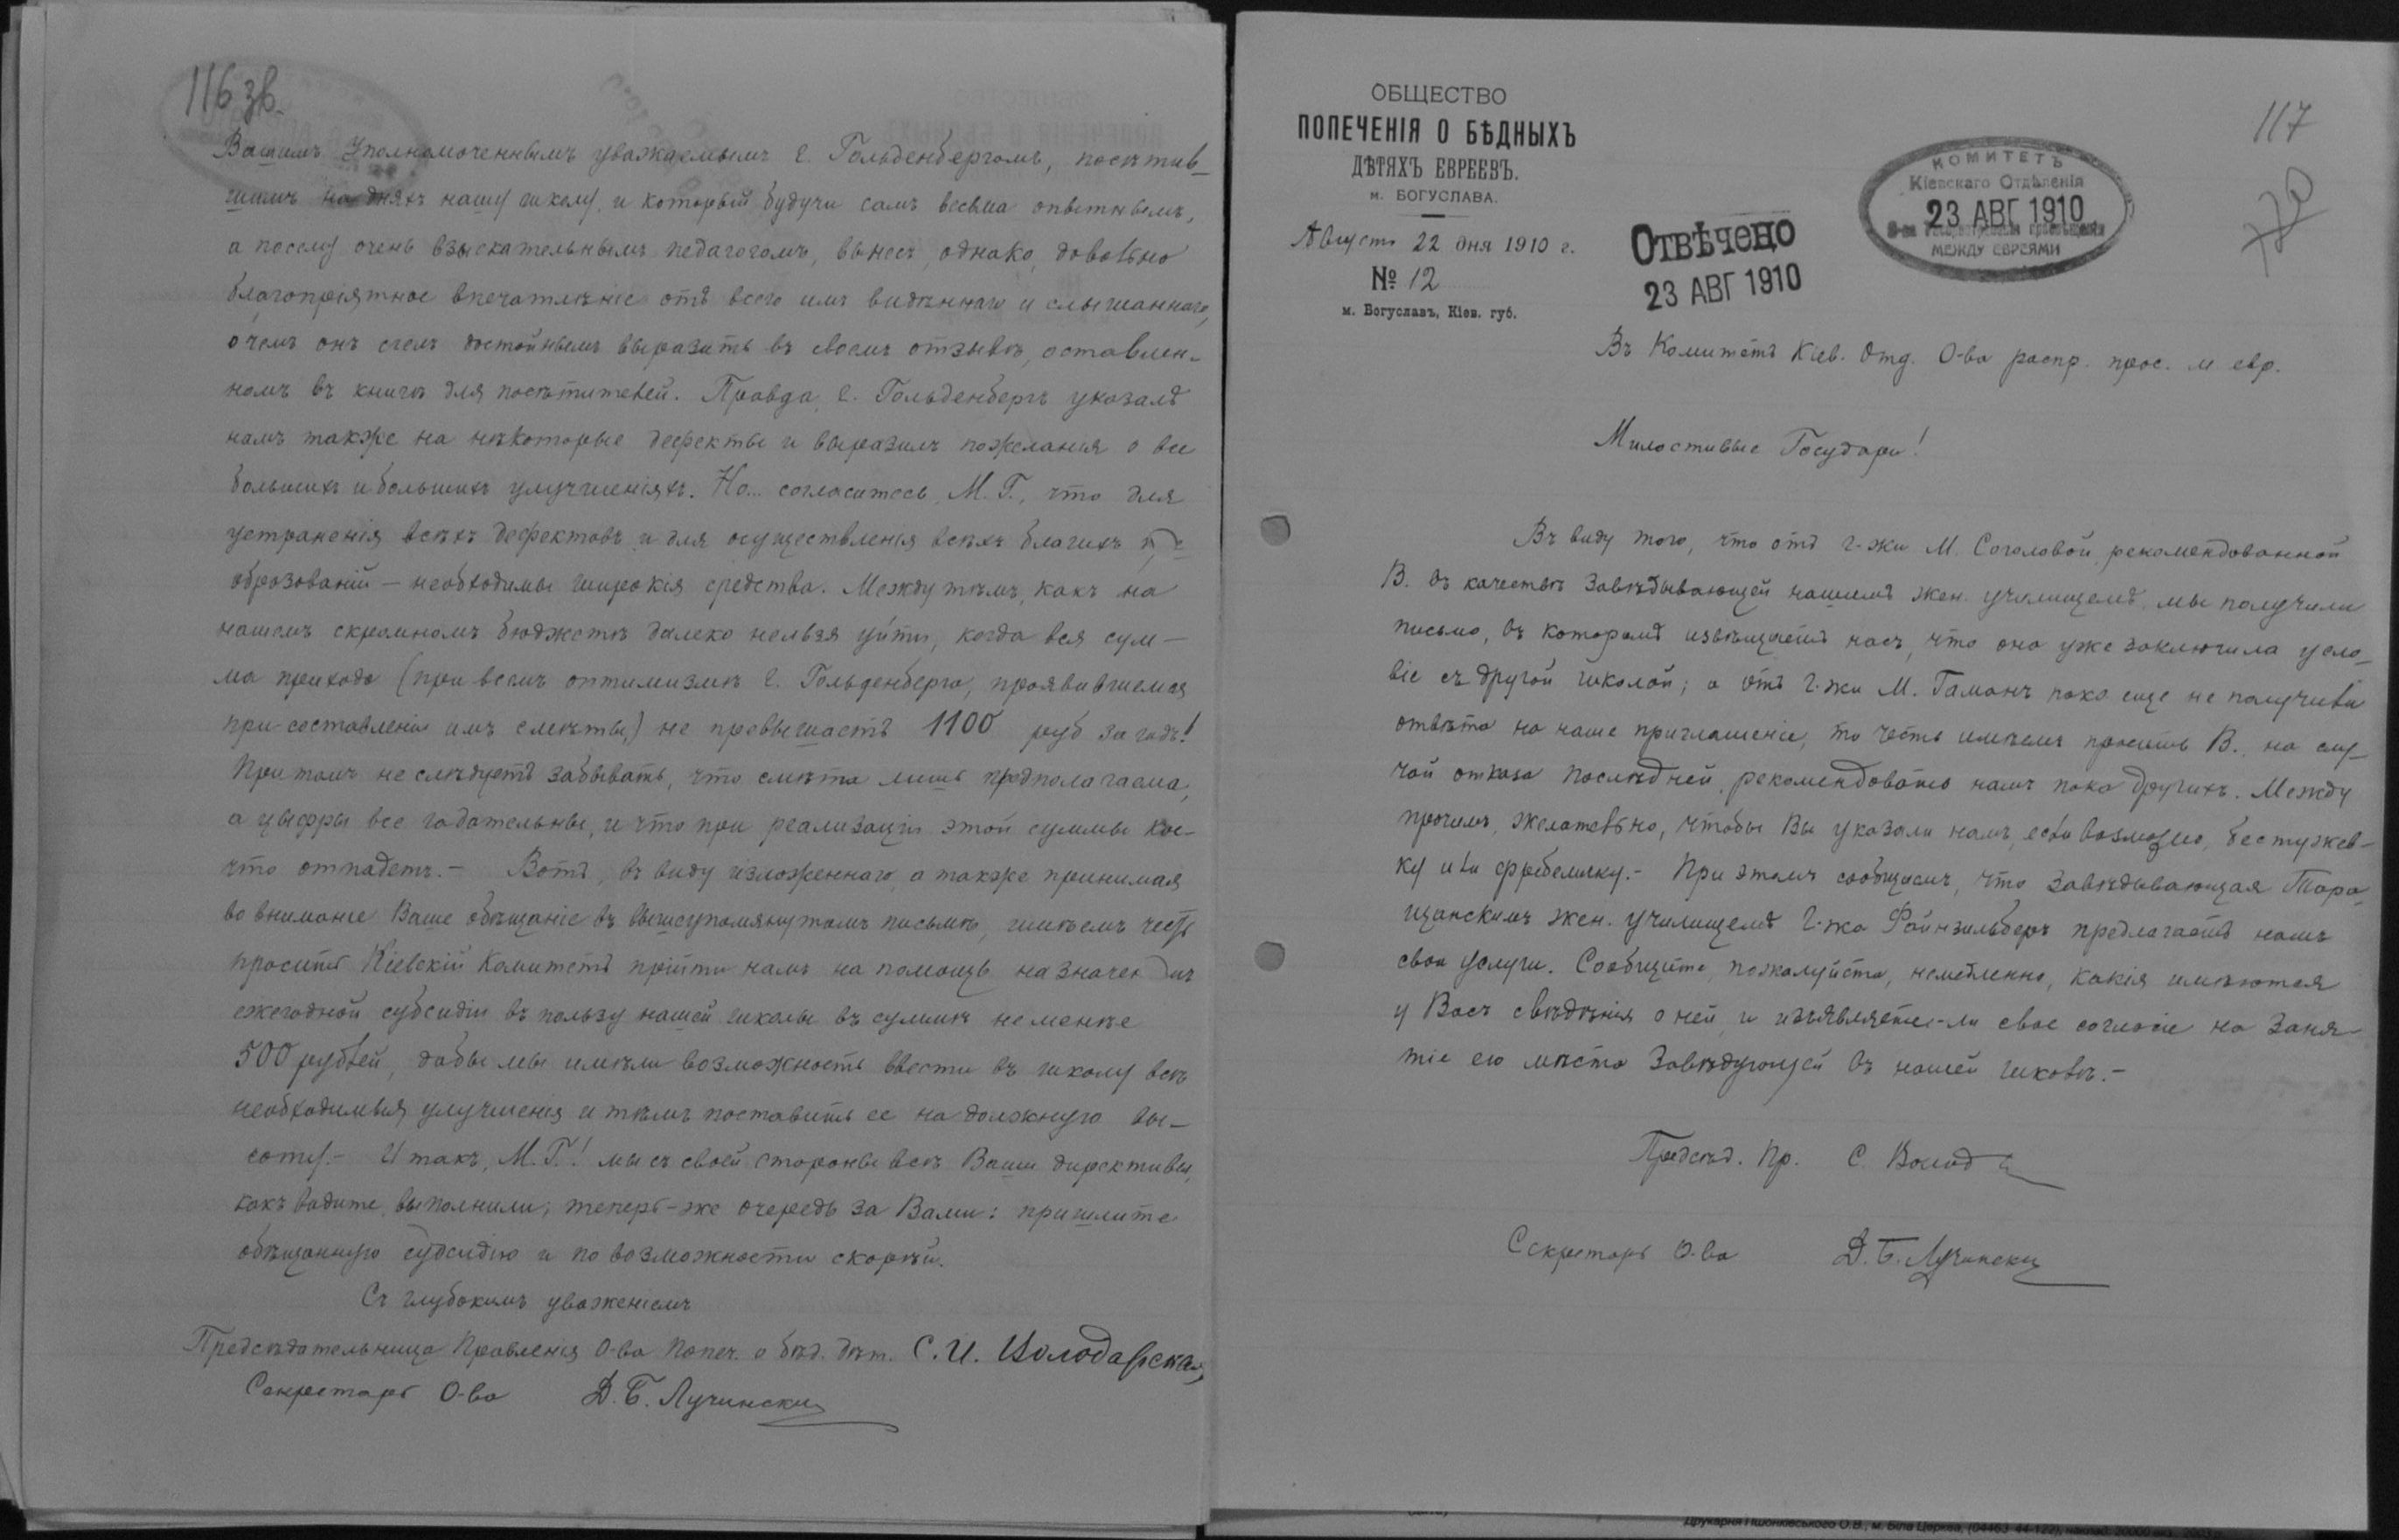 116 зв.
Вашимъ Уполномоченнымъ уважаемымъ г. Гольденбергомъ, посѣтив-
шимъ на дняхъ нашу школу, и который будучи самъ весьма опытнымъ,
а посему очень взыскательнымъ педагогомъ, вынесъ, однако, довольно
благопріятное впечатлѣніе отъ всего имъ видѣннаго и слышаннаго,
о чемъ онъ счелъ достойнымъ выразить въ своемъ отзывѣ, оставлен-
номъ въ книгѣ для посѣтителей. Правда, г. Гольденбергъ указалъ
намъ также на нѣкоторые дефекты и выразилъ пожеланія о все
большихъ и большихъ улучшеніяхъ. Но... согласитесь, М. Г., что для
устраненія всѣхъ дефектовъ и для осуществленія всѣхъ благихъ
образованій — необходимы широкія средства. Между тѣмъ, какъ на
нашемъ скромномъ бюджетѣ далеко нельзя уйти, когда вся сум-
ма прихода (при всемъ оптимизмѣ г. Гольденберга, проявившемся
при составленіи имъ смѣты,) не превышаетъ 1100 руб за годъ!
При томъ не слѣдуетъ забывать, что смѣта лишь предполагаема,
а цыфры все гадательны, и что при реализаціи этой суммы кое-
что отпадетъ. — Вотъ, въ виду изложеннаго, а также принимая
во вниманіе Ваше обѣщаніе въ вышеупомянутомъ письмѣ, имѣемъ честь
просить Кіевскій Комитетъ прійти намъ на помощь назначен
ежегодной субсидіи въ пользу нашей школы въ суммѣ не менѣе
500 рублей, дабы мы имѣли возможность ввести въ школу всѣ
необходимыя улучшенія и тѣмъ поставить ее на должную вы-
соту. — И такъ, М. Г.! мы съ своей стороны всѣ Ваши директивы,
какъ видите, выполнили; теперь-же очередь за Вами: пришлите
обѣщанную субсидію и по возможности скорѣй.
Съ глубокимъ уваженіемъ
Предсѣдательница Правленія О-ва попеч. о бѣд. дѣт. С. И. Володарская
Секретарь О-ва Д. Б. Лучински
ОБЩЕСТВО
ПОПЕЧЕНІЯ О БѢДНЫХЪ
ДѢТЯХЪ ЕВРЕЕВЪ.
м. БОГУСЛАВА.
Августъ 22 дня 1910 г.
№ 12
м. Богуславъ, Кіев. губ.
ОТВѢЧЕНО
23 АВГ 1910
КОМИТЕТЪ
Кіевскаго Отдѣленія
23 АВГ 1910
МЕЖДУ ЕВРЕЯМИ
117
Въ Комитетъ Кіев. Отд. О-ва распр. прос. м евр.
Милостивые Государи!
Въ виду того, что отъ г-жи М. Соголовой, рекомендованной
В. въ качествѣ Завѣдывающей нашимъ жен. училищемъ, мы получили
письмо, въ которомъ извѣщаетъ насъ, что она уже заключила усло-
віе съ другой школой; а отъ г-жи М. Гаманъ пока еще не получили
отвѣта на наше приглашеніе, то честь имѣемъ просить В., на слу-
чай отказа послѣдней, рекомендовать намъ пока другихъ. Между
прочимъ, желательно, чтобы Вы указали намъ, если возможно, бестужев-
ку или фребеличку. — При этомъ сообщаемъ, что Завѣдывающая Тара-
щанскимъ жен. училищемъ г-жа Файнзильберъ предлагаетъ намъ
свои услуги. Сообщите, пожалуйста, немедленно, какія имѣются
у Васъ свѣдѣнія о ней, и изъявляете-ли свое согласіе на заня-
тіе ею мѣста Завѣдующей въ нашей школѣ. —
Предсѣд. Пр. С. Волод
Секретарь О-ва Д. Б. Лучински